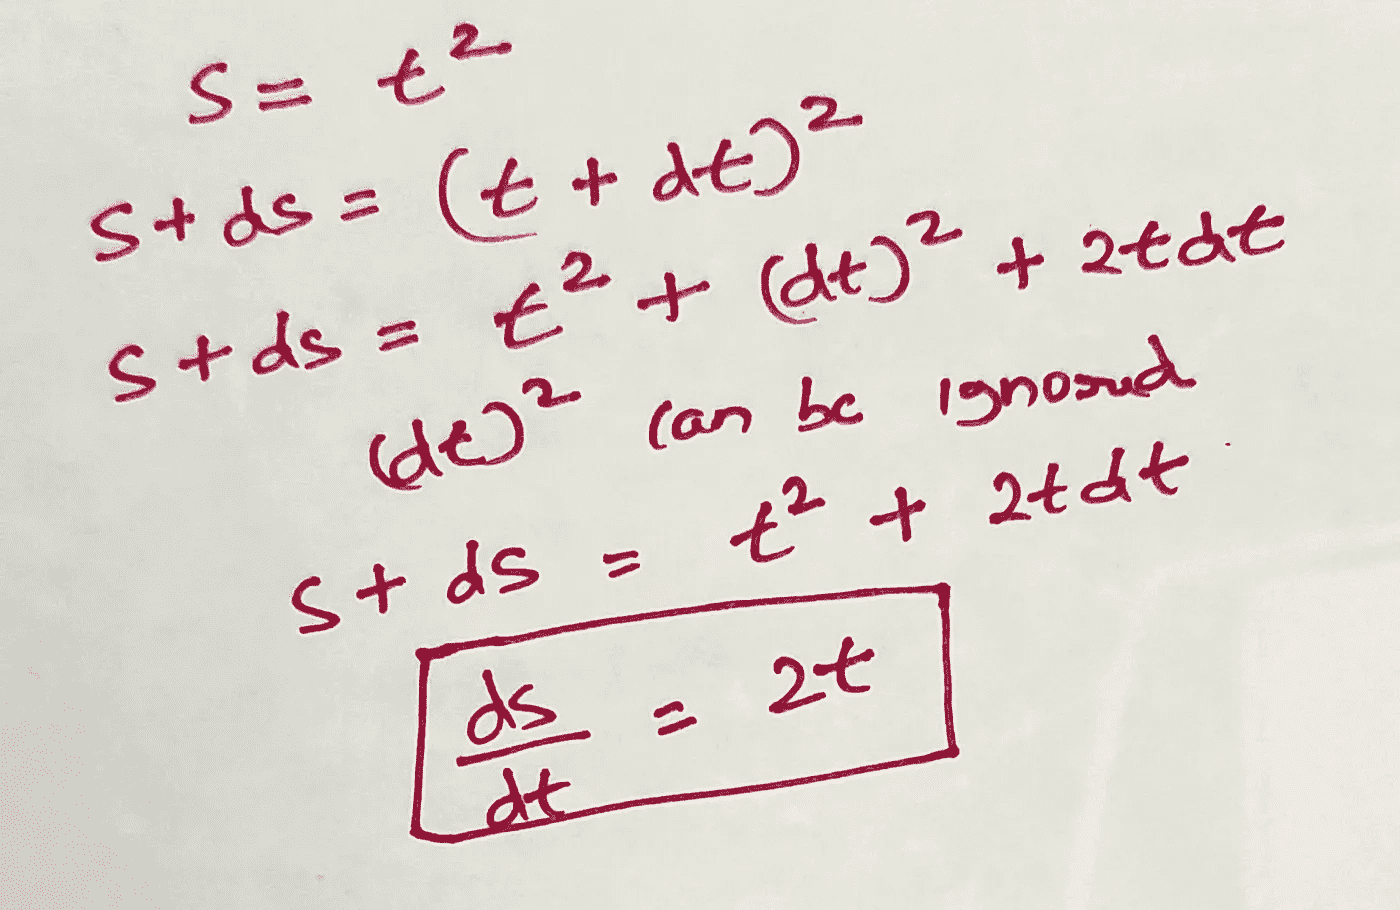 S = t²
S + ds = (t + dt)²
S + ds = t² + (dt)² + 2tdt
(dt)² can be ignored
S + ds = t² + 2tdt
ds/dt = 2t